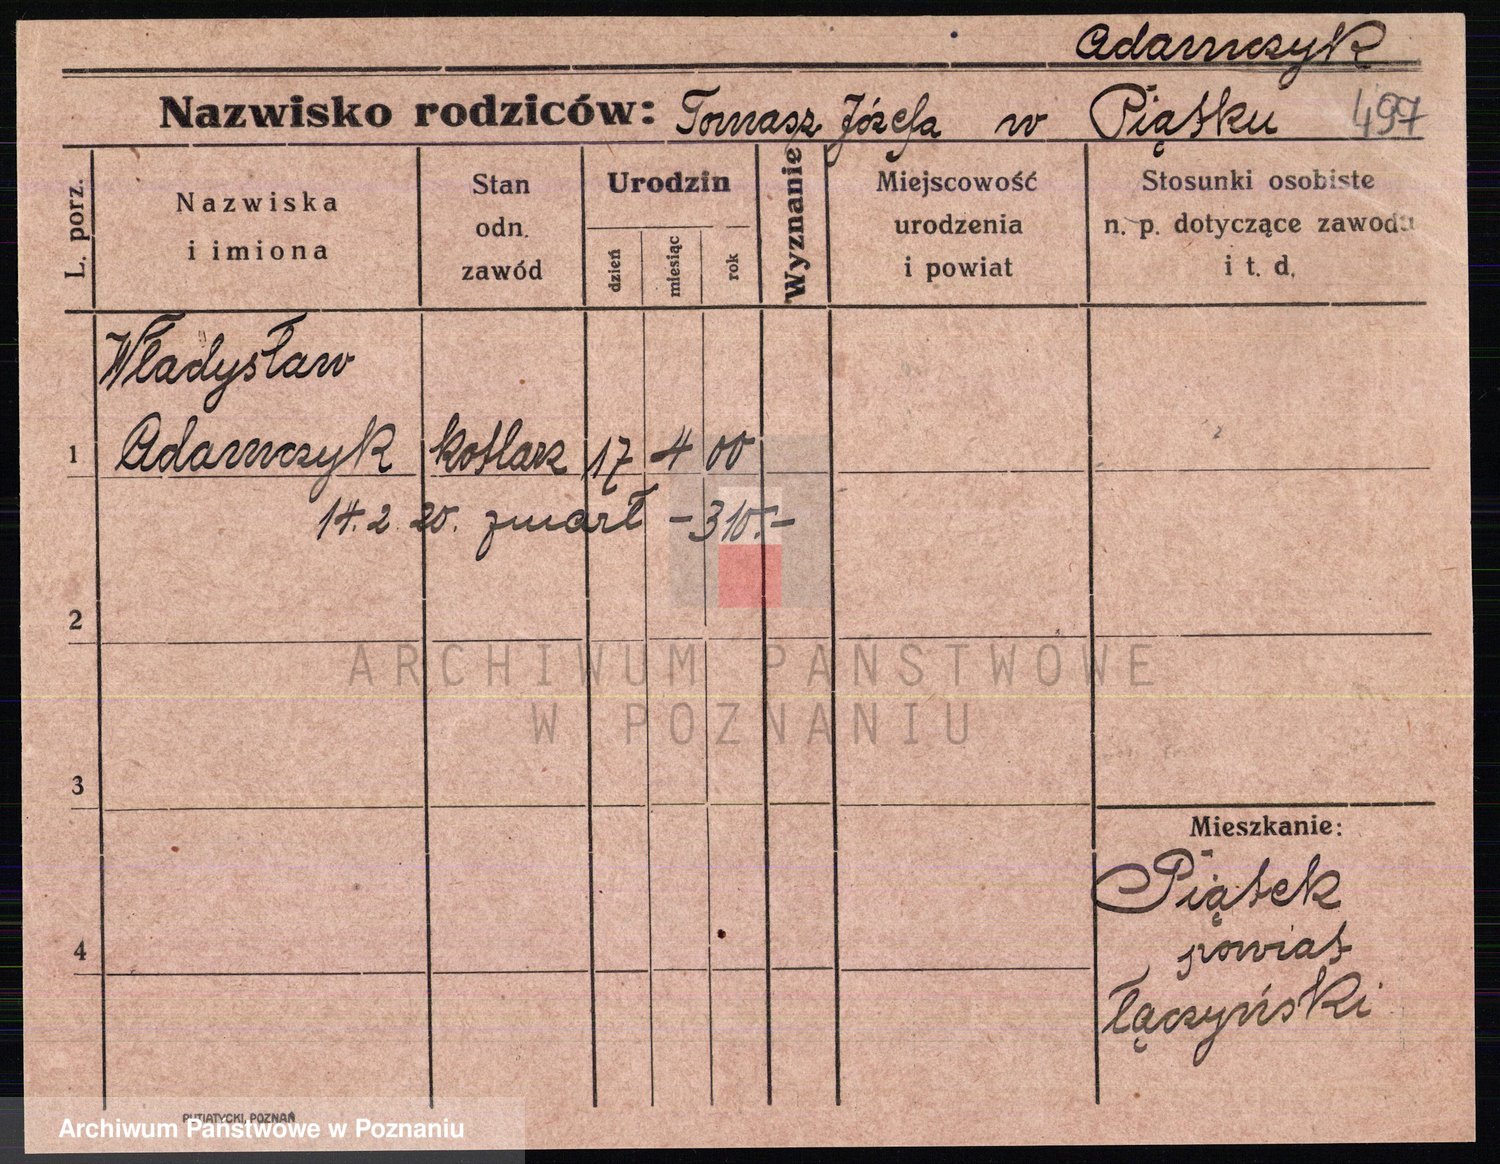 Adamczyk
Nazwisko rodziców: Tomasz Józefa w Piątku 497
L. porz.
Nazwiska
i imiona
Stan
odn.
zawód
Urodzin
dzień
miesiąc
rok
Wyznanie
Miejscowość
urodzenia
i powiat
Stosunki osobiste
n. p. dotyczące zawodu
i t. d.
Władysław
1 Adamczyk kotlarz 17 4 00
14. 2. 20. zmarł -310.-
2
ARCHIWUM PAŃSTWOWE
W POZNANIU
3
Mieszkanie:
Piątek
4 powiat
łączyński
PUTIATYCKI, POZNAŃ
Archiwum Państwowe w Poznaniu